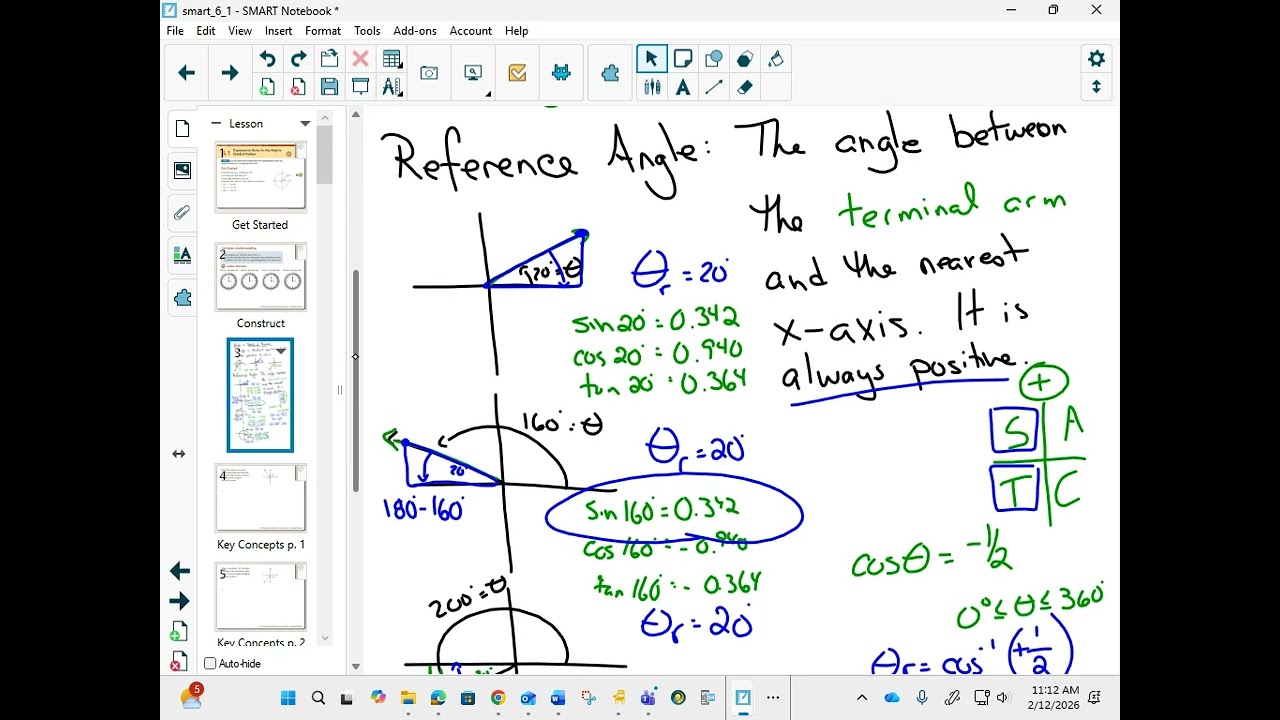 smart_6_1 - SMART Notebook *
File Edit View Insert Format Tools Add-ons Account Help
Lesson
1
Get Started
2
Construct
3
4
Key Concepts p. 1
5
Key Concepts p. 2
Auto-hide
Reference Angle: The angle between
the terminal arm
and the nearest
x-axis. It is
always positive.
20° = θ
θr = 20°
sin 20° = 0.342
cos 20° = 0.940
tan 20° = 0.364
160° = θ
20°
180° - 160°
θr = 20°
sin 160° = 0.342
cos 160° = - 0.940
tan 160° = - 0.364
+
S A
T C
cosθ = -1/2
0° ≤ θ ≤ 360°
θr = cos⁻¹ (+1/2)
200° = θ
θr = 20°
5
11:12 AM
2/12/2026